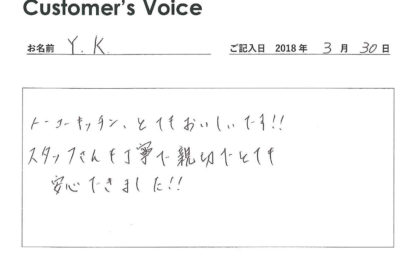 Customer's Voice
お名前 Y.K. ご記入日 2018年 3月 30日
トーコーキッチン、とてもおいしいです!!
スタッフさんも丁寧で親切でとても
安心できました!!